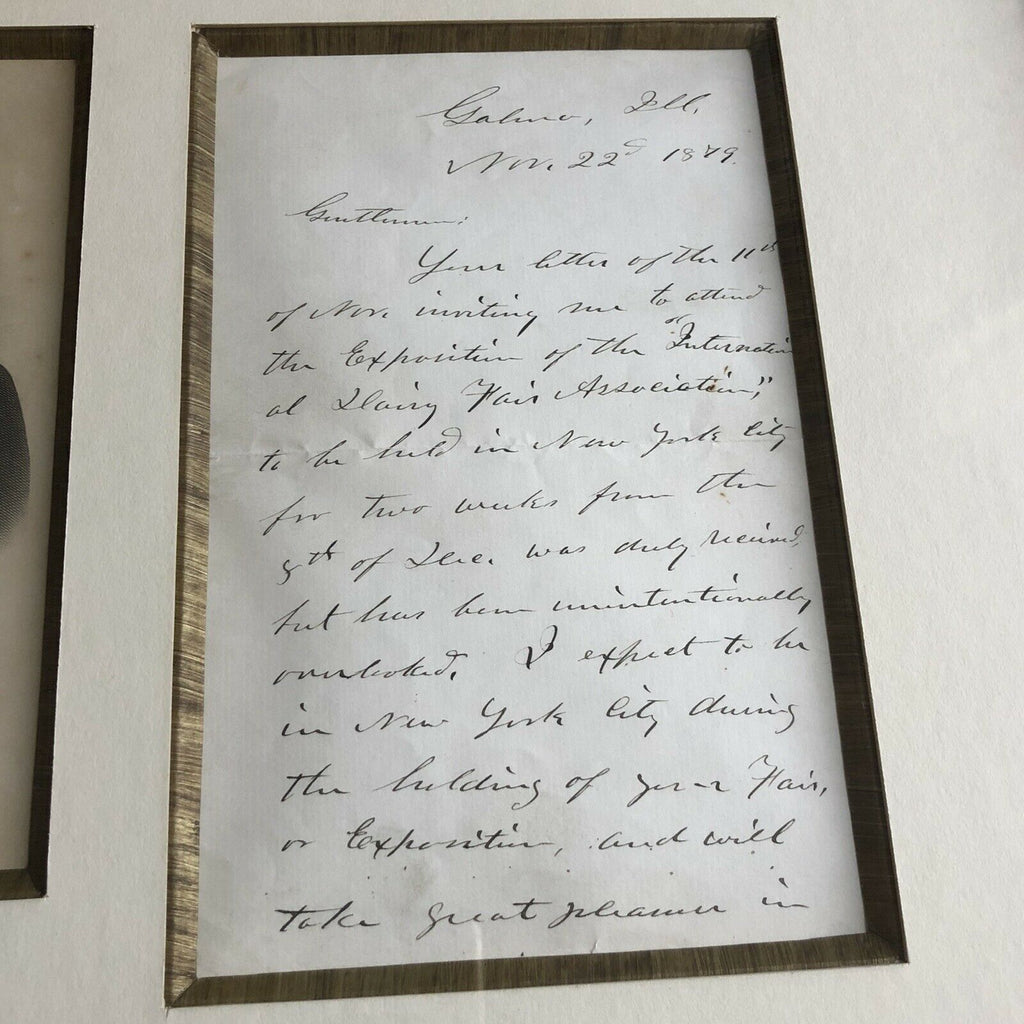 Galena, Ill.
Nov. 22d 1879.
Gentlemen:
Your letter of the 11th
of Nov. inviting me to attend
the Exposition of the "Internation
al Dairy Fair Association",
to be held in New York City
for two weeks from the
8th of Dec. was duly received,
but has been unintentionally
overlooked. I expect to be
in New York City during
the holding of your Fair,
or Exposition, and will
take great pleasure in